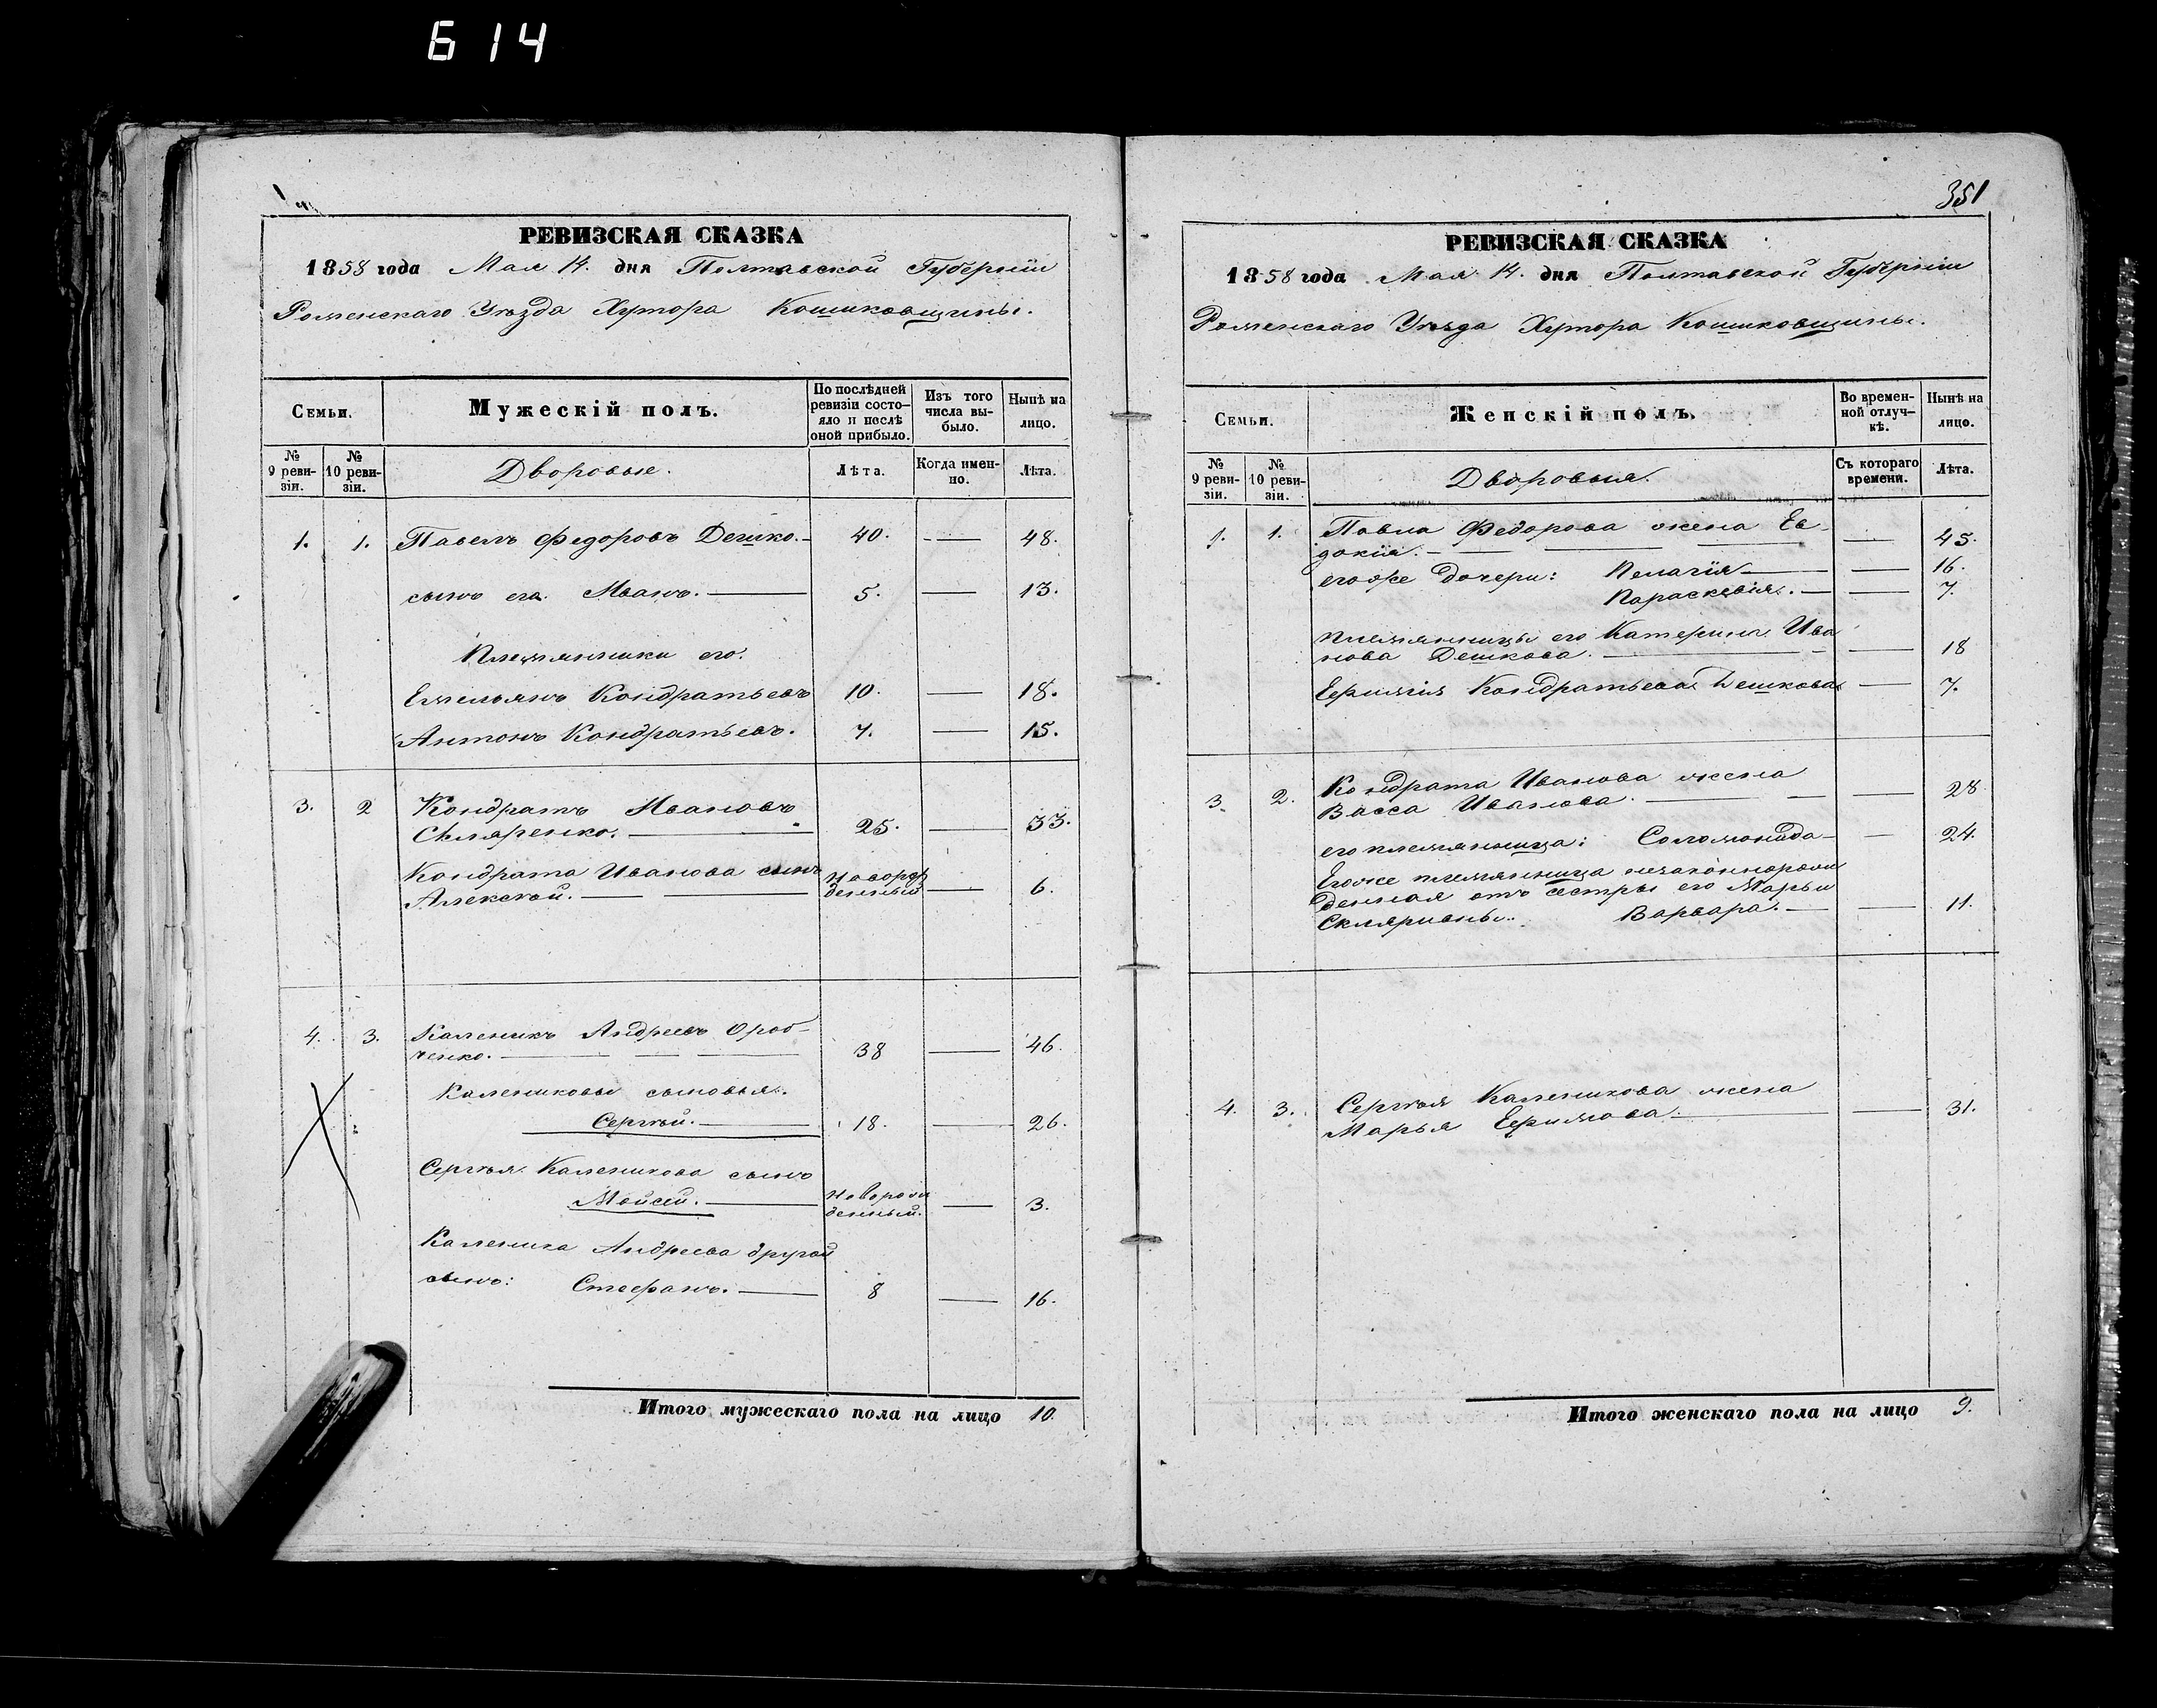 614
РЕВИЗСКАЯ СКАЗКА
1858 года Мая 14. дня Полтавской Губерніи
Роменскаго Уѣзда Хутора Кошиковщины.
Семьи.
Мужескій полъ.
По послѣдней ревизіи состо-яло и послѣ оной прибыло.
Изъ того числа вы-было.
Нынѣ на лицо.
№ 9 реви-зіи.
№ 10 реви-зіи.
Дворовые.
Лѣта.
Когда имен-но.
Лѣта.
1. 1. Павелъ Федоровъ Дешко. 40. — 48.
сынъ его Иванъ. 5. — 13.
Племянники его.
Емельянъ Кондратьевъ 10. — 18.
Антонъ Кондратьевъ. 7. — 15.
3. 2 Кондратъ Ивановъ
Скляренко. 25. — 33.
Кондрата Иванова сынъ новорож
Алексѣй. денный — 6.
4. 3. Каленикъ Андреевъ Ороб-
ченко. 38 — 46.
Калениковы сыновья.
Сергѣй. 18. — 26.
Сергѣя Каленикова сынъ
Мойсей. новорож денный. — 3.
Каленика Андреева другой
сынъ: Стефанъ. 8 — 16.
Итого мужескаго пола на лицо 10.
351
РЕВИЗСКАЯ СКАЗКА
1858 года Мая 14. дня Полтавской Губерніи
Роменскаго Уѣзда Хутора Кошиковщины.
Семьи.
Женскій полъ.
Во времен-ной отлуч-кѣ.
Нынѣ на лицо.
№ 9 реви-зіи.
№ 10 реви-зіи.
Дворовыя.
Съ котораго времени.
Лѣта.
1. 1. Павла Федорова жена Ев-
докія. — 45.
егоже дочери: Пелагія — 16.
Параскевія. — 7.
племянницы его Катерина Ива
нова Дешкова. — 18
Кондратьева Дешкова — 7.
3. 2. Кондрата Иванова жена
Васса Иванова. — 28
его племянница: Соломонида — 24.
Егоже племянница незаконнорож
денная отъ сестры его Марьи
Скляривны. Варвара. — 11.
4. 3. Сергѣя Каленикова жена
Марья Ефимова. — 31.
Итого женскаго пола на лицо 9.